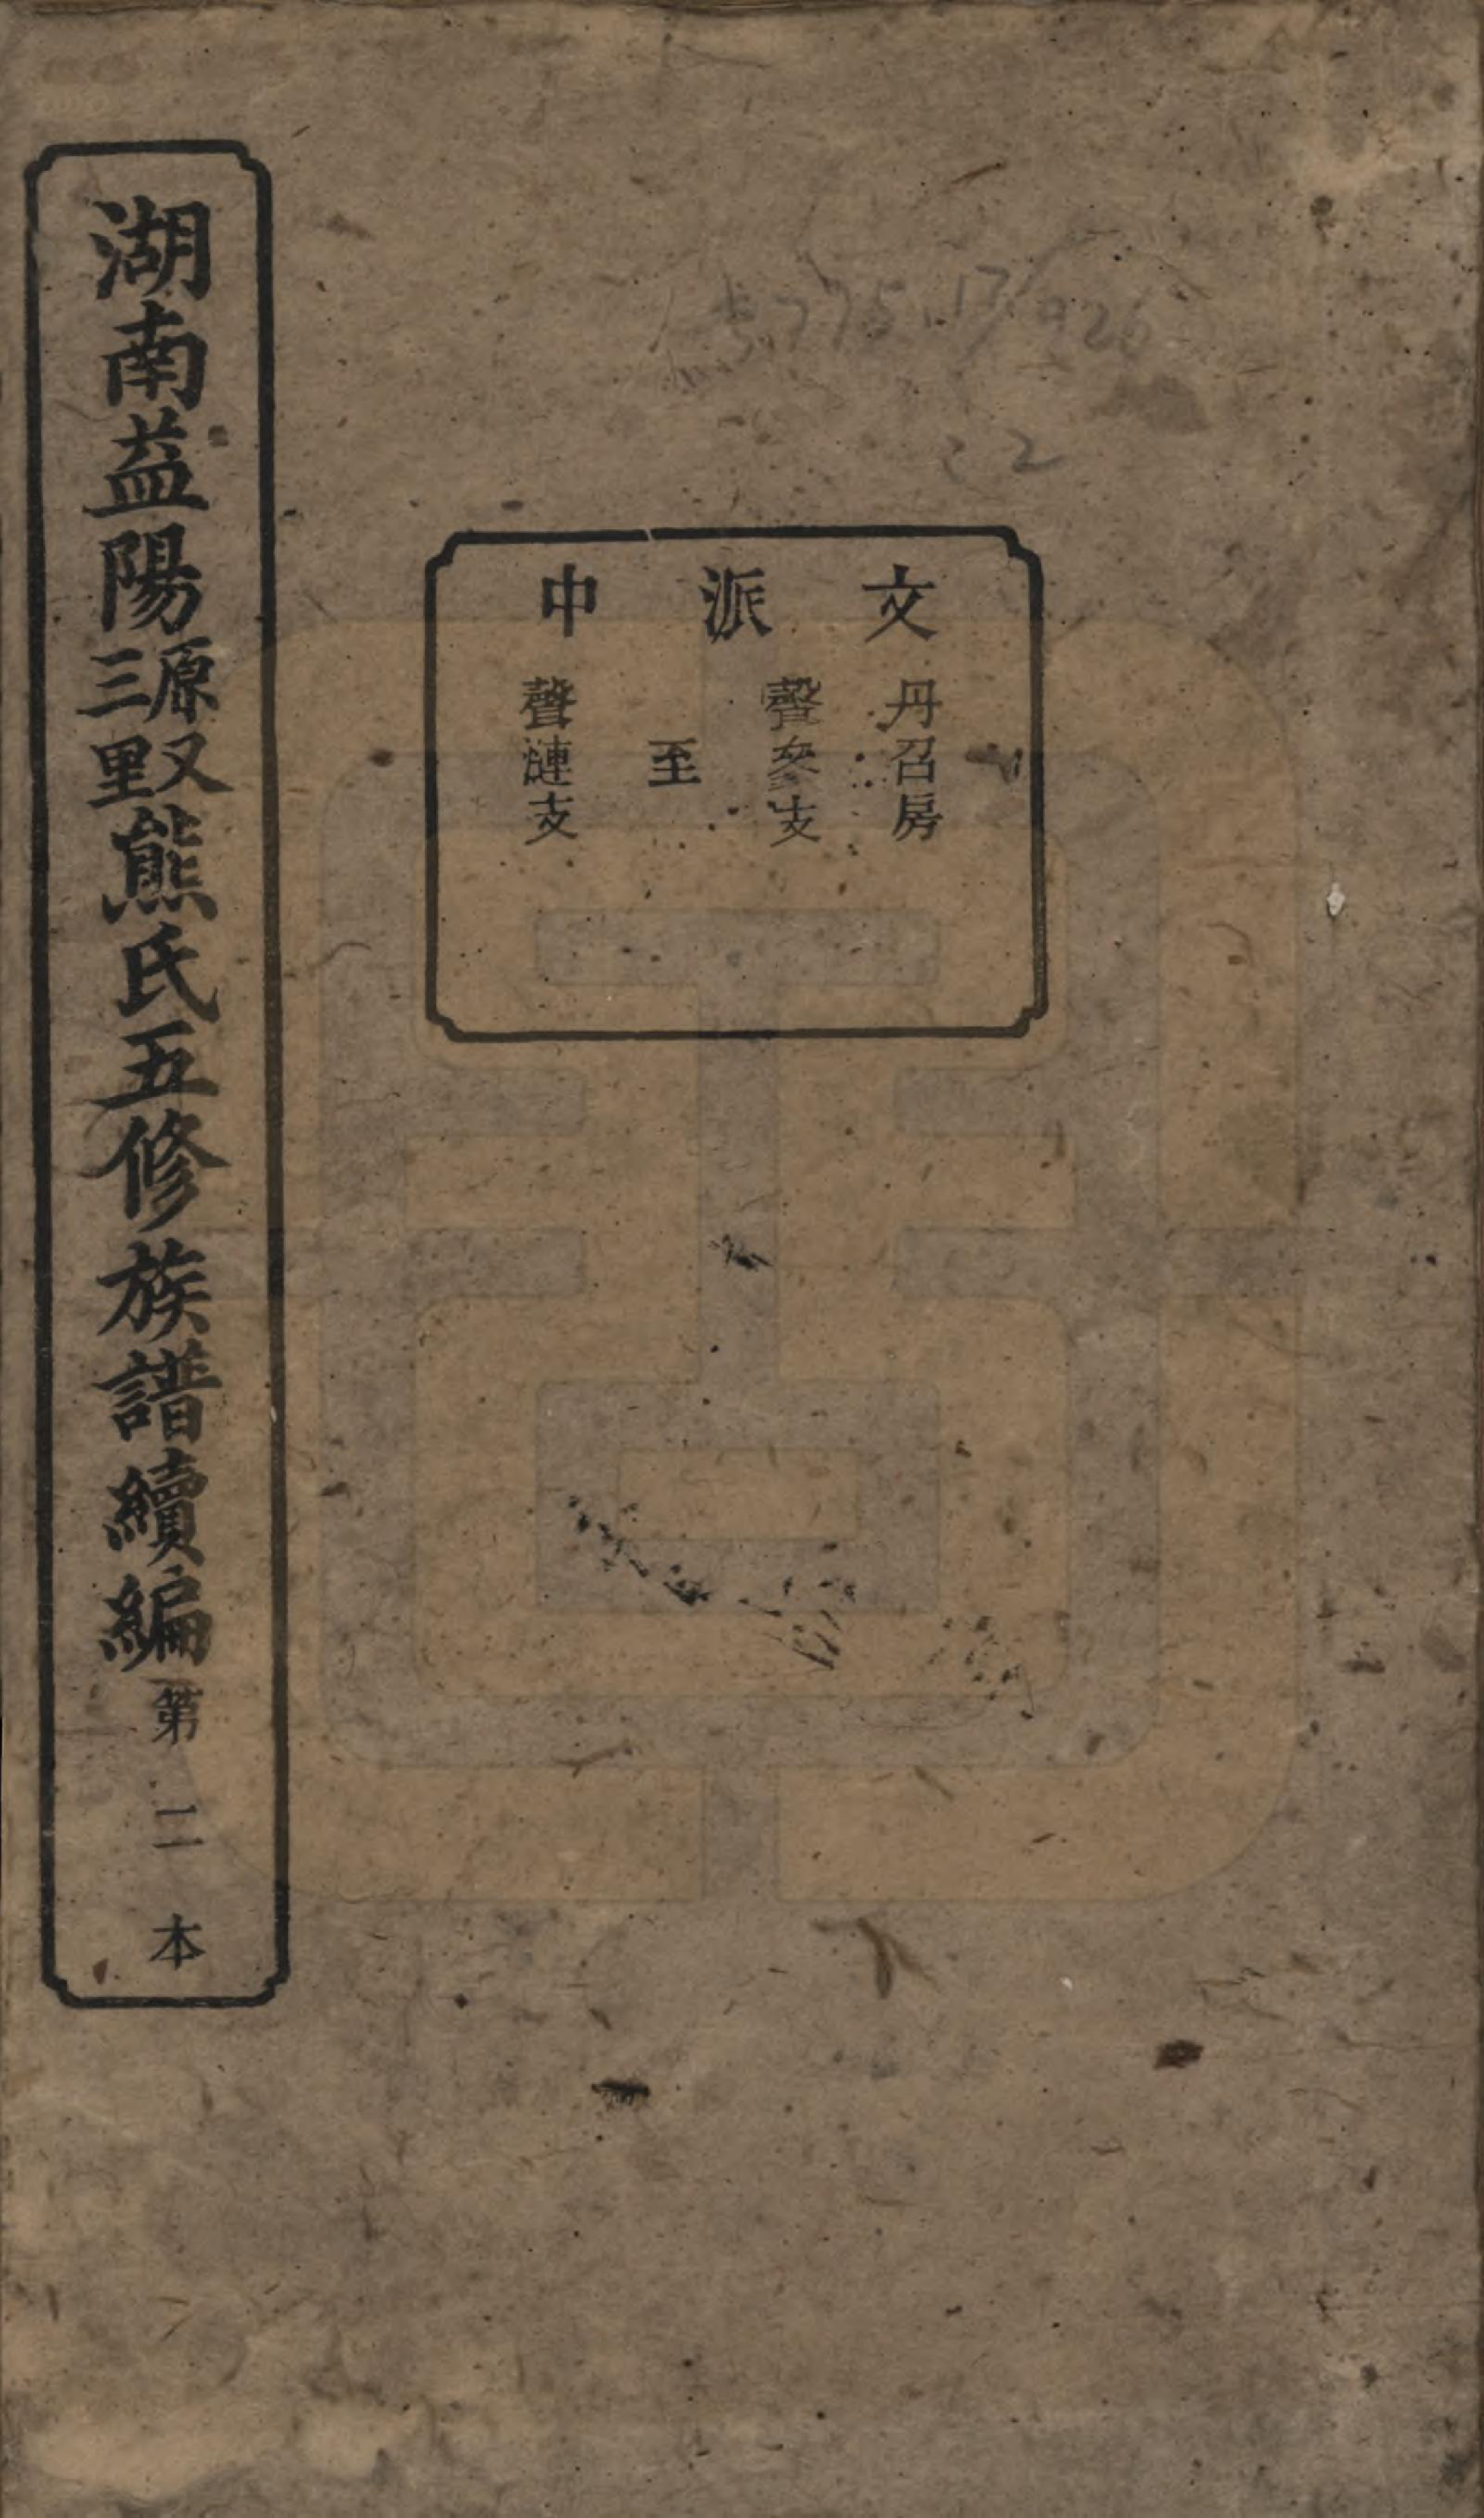 775.17/926
22
文派中
丹召房
聲參支
至
聲漣支
湖南益陽源又三里熊氏五修族譜續編第二本